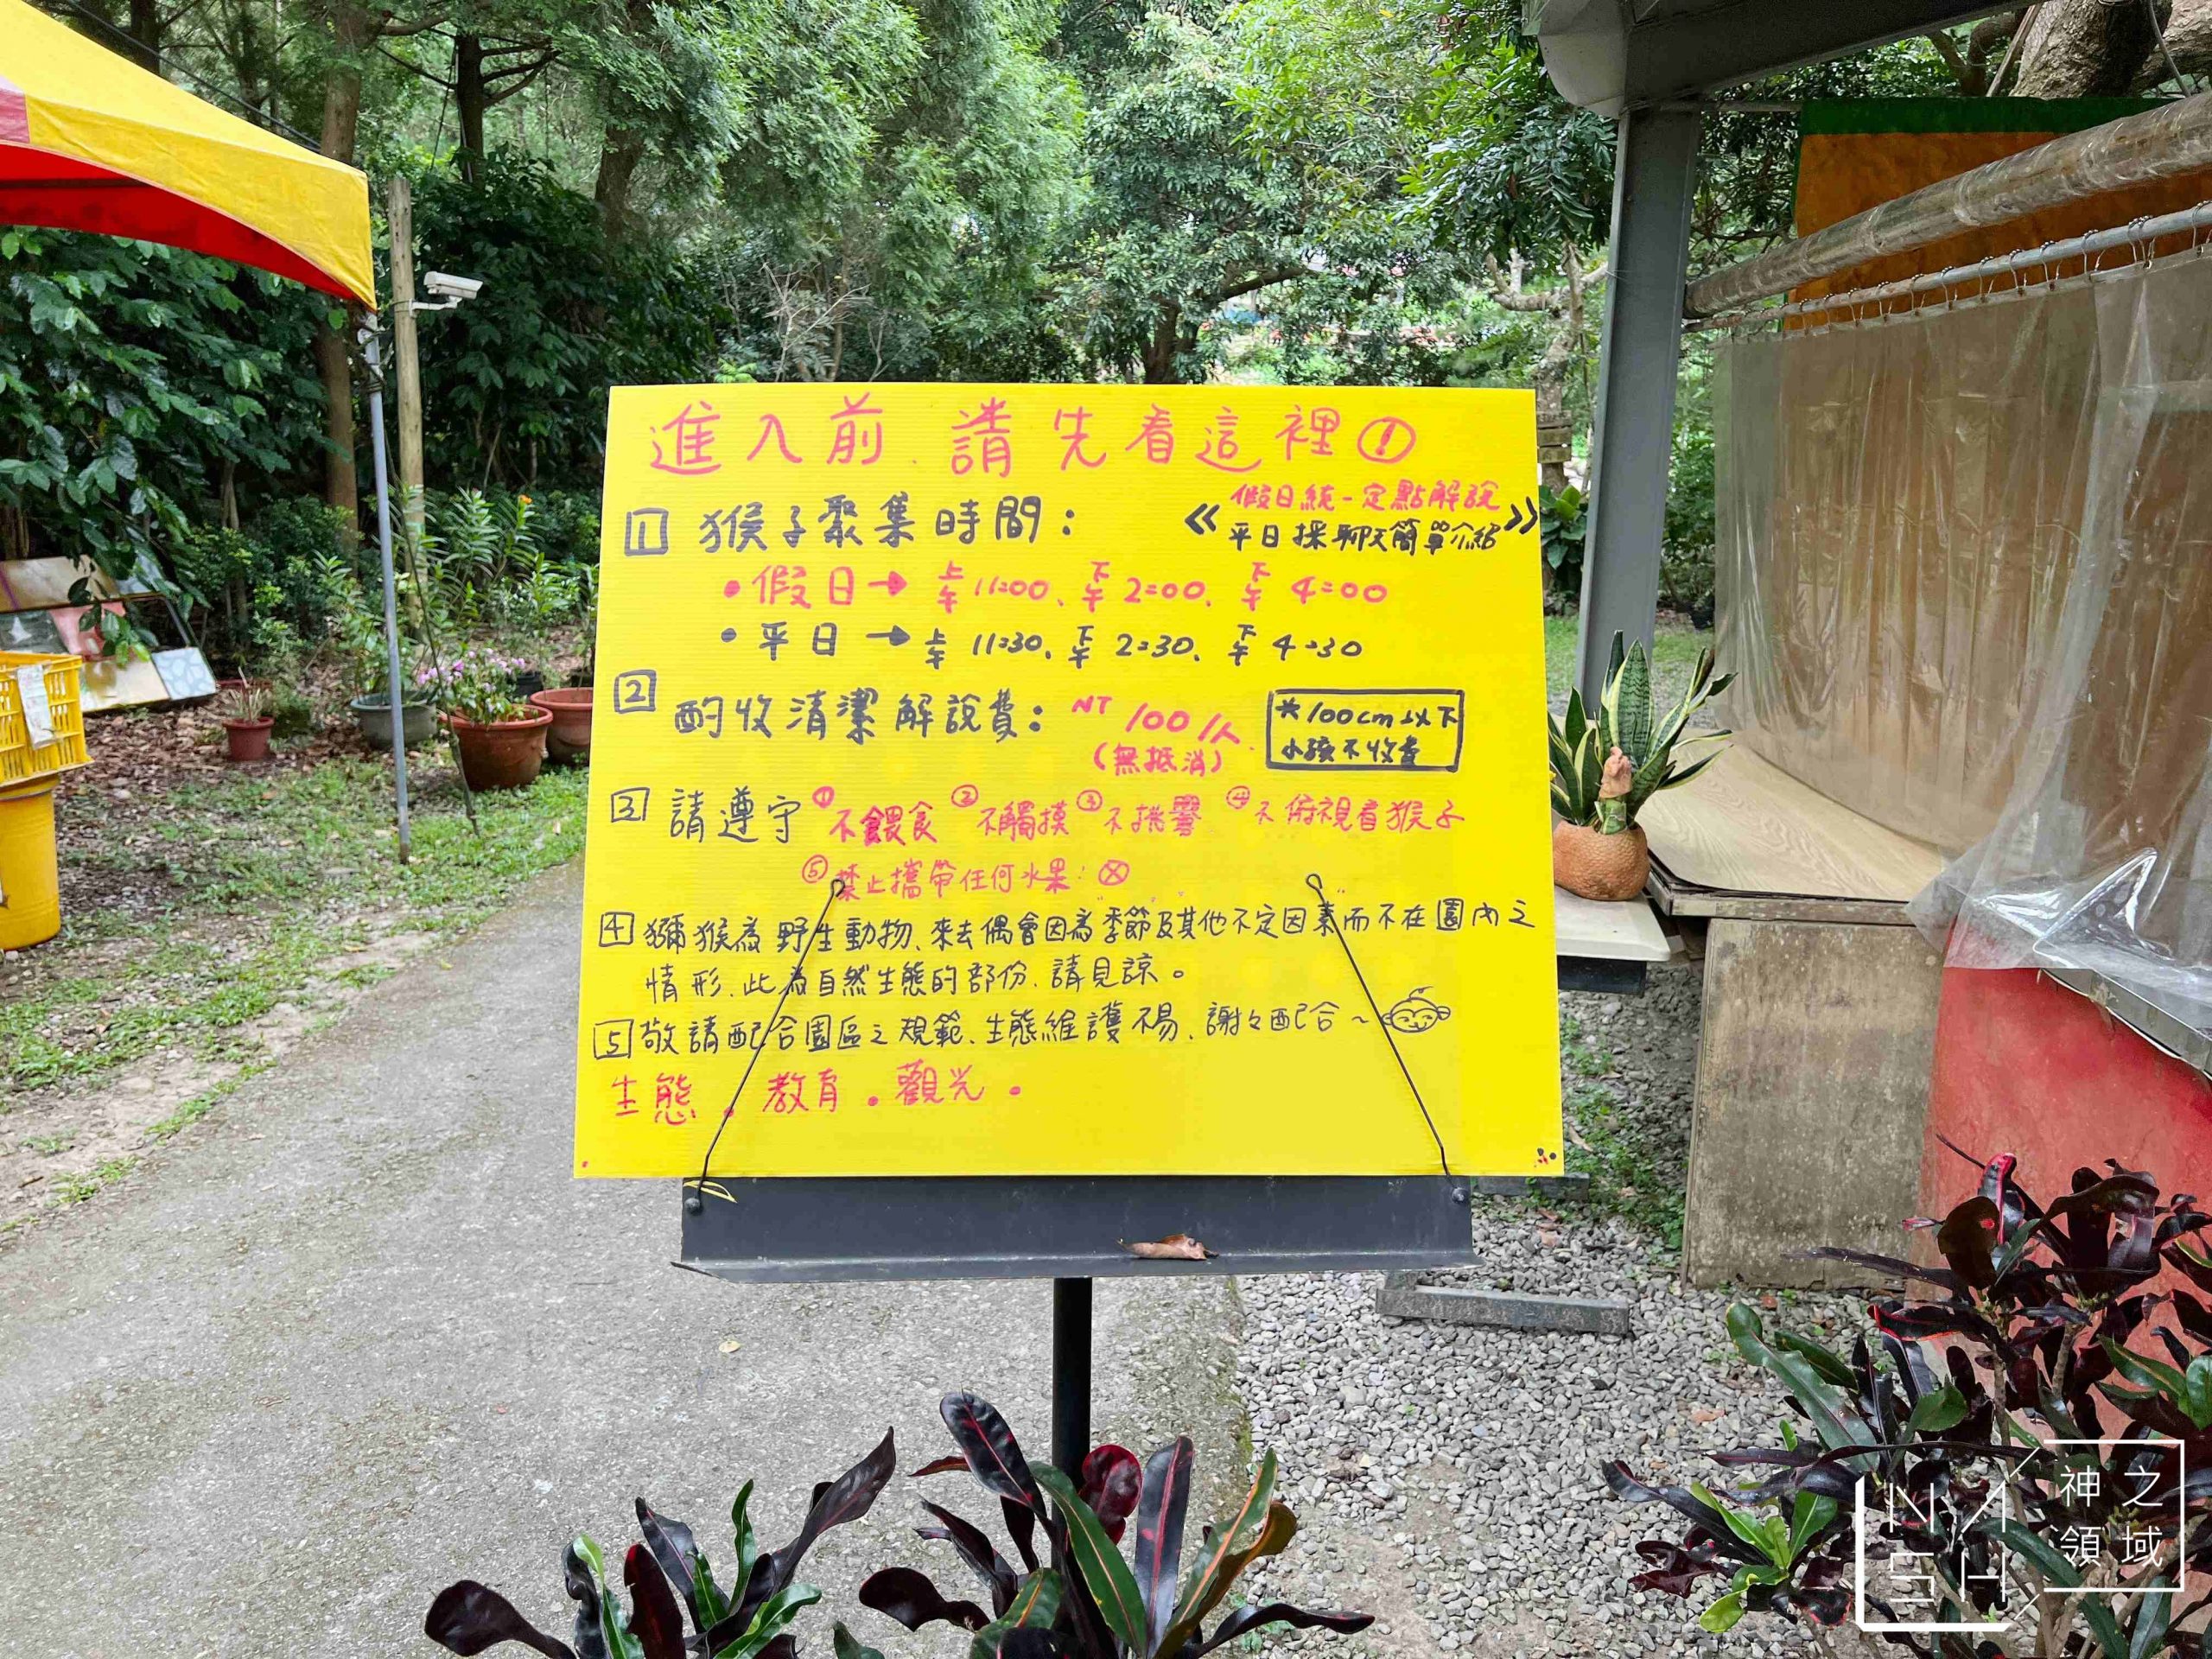 進入前、請先看這裡!
1 猴子聚集時間：
《假日統一定點解說
平日採聊天簡單介紹》
•假日→上午11:00、下午2:00、下午4:00
•平日→上午11:30、下午2:30、下午4:30
2 酌收清潔解說費：NT100/人
(無抵消)
*100cm以下
小孩不收費
3 請遵守①不餵食②不觸摸③不挑釁④不俯視看猴子
⑤禁止攜帶任何水果:ⓧ
4 獼猴為野生動物、來去偶會因為"季節"及其他不定因素"而不在園內之
情形、此為自然生態的部份、請見諒。
5 敬請配合園區之規範、生態維護不易、謝々配合~
生態.教育.觀光.
NASH
神之
領域